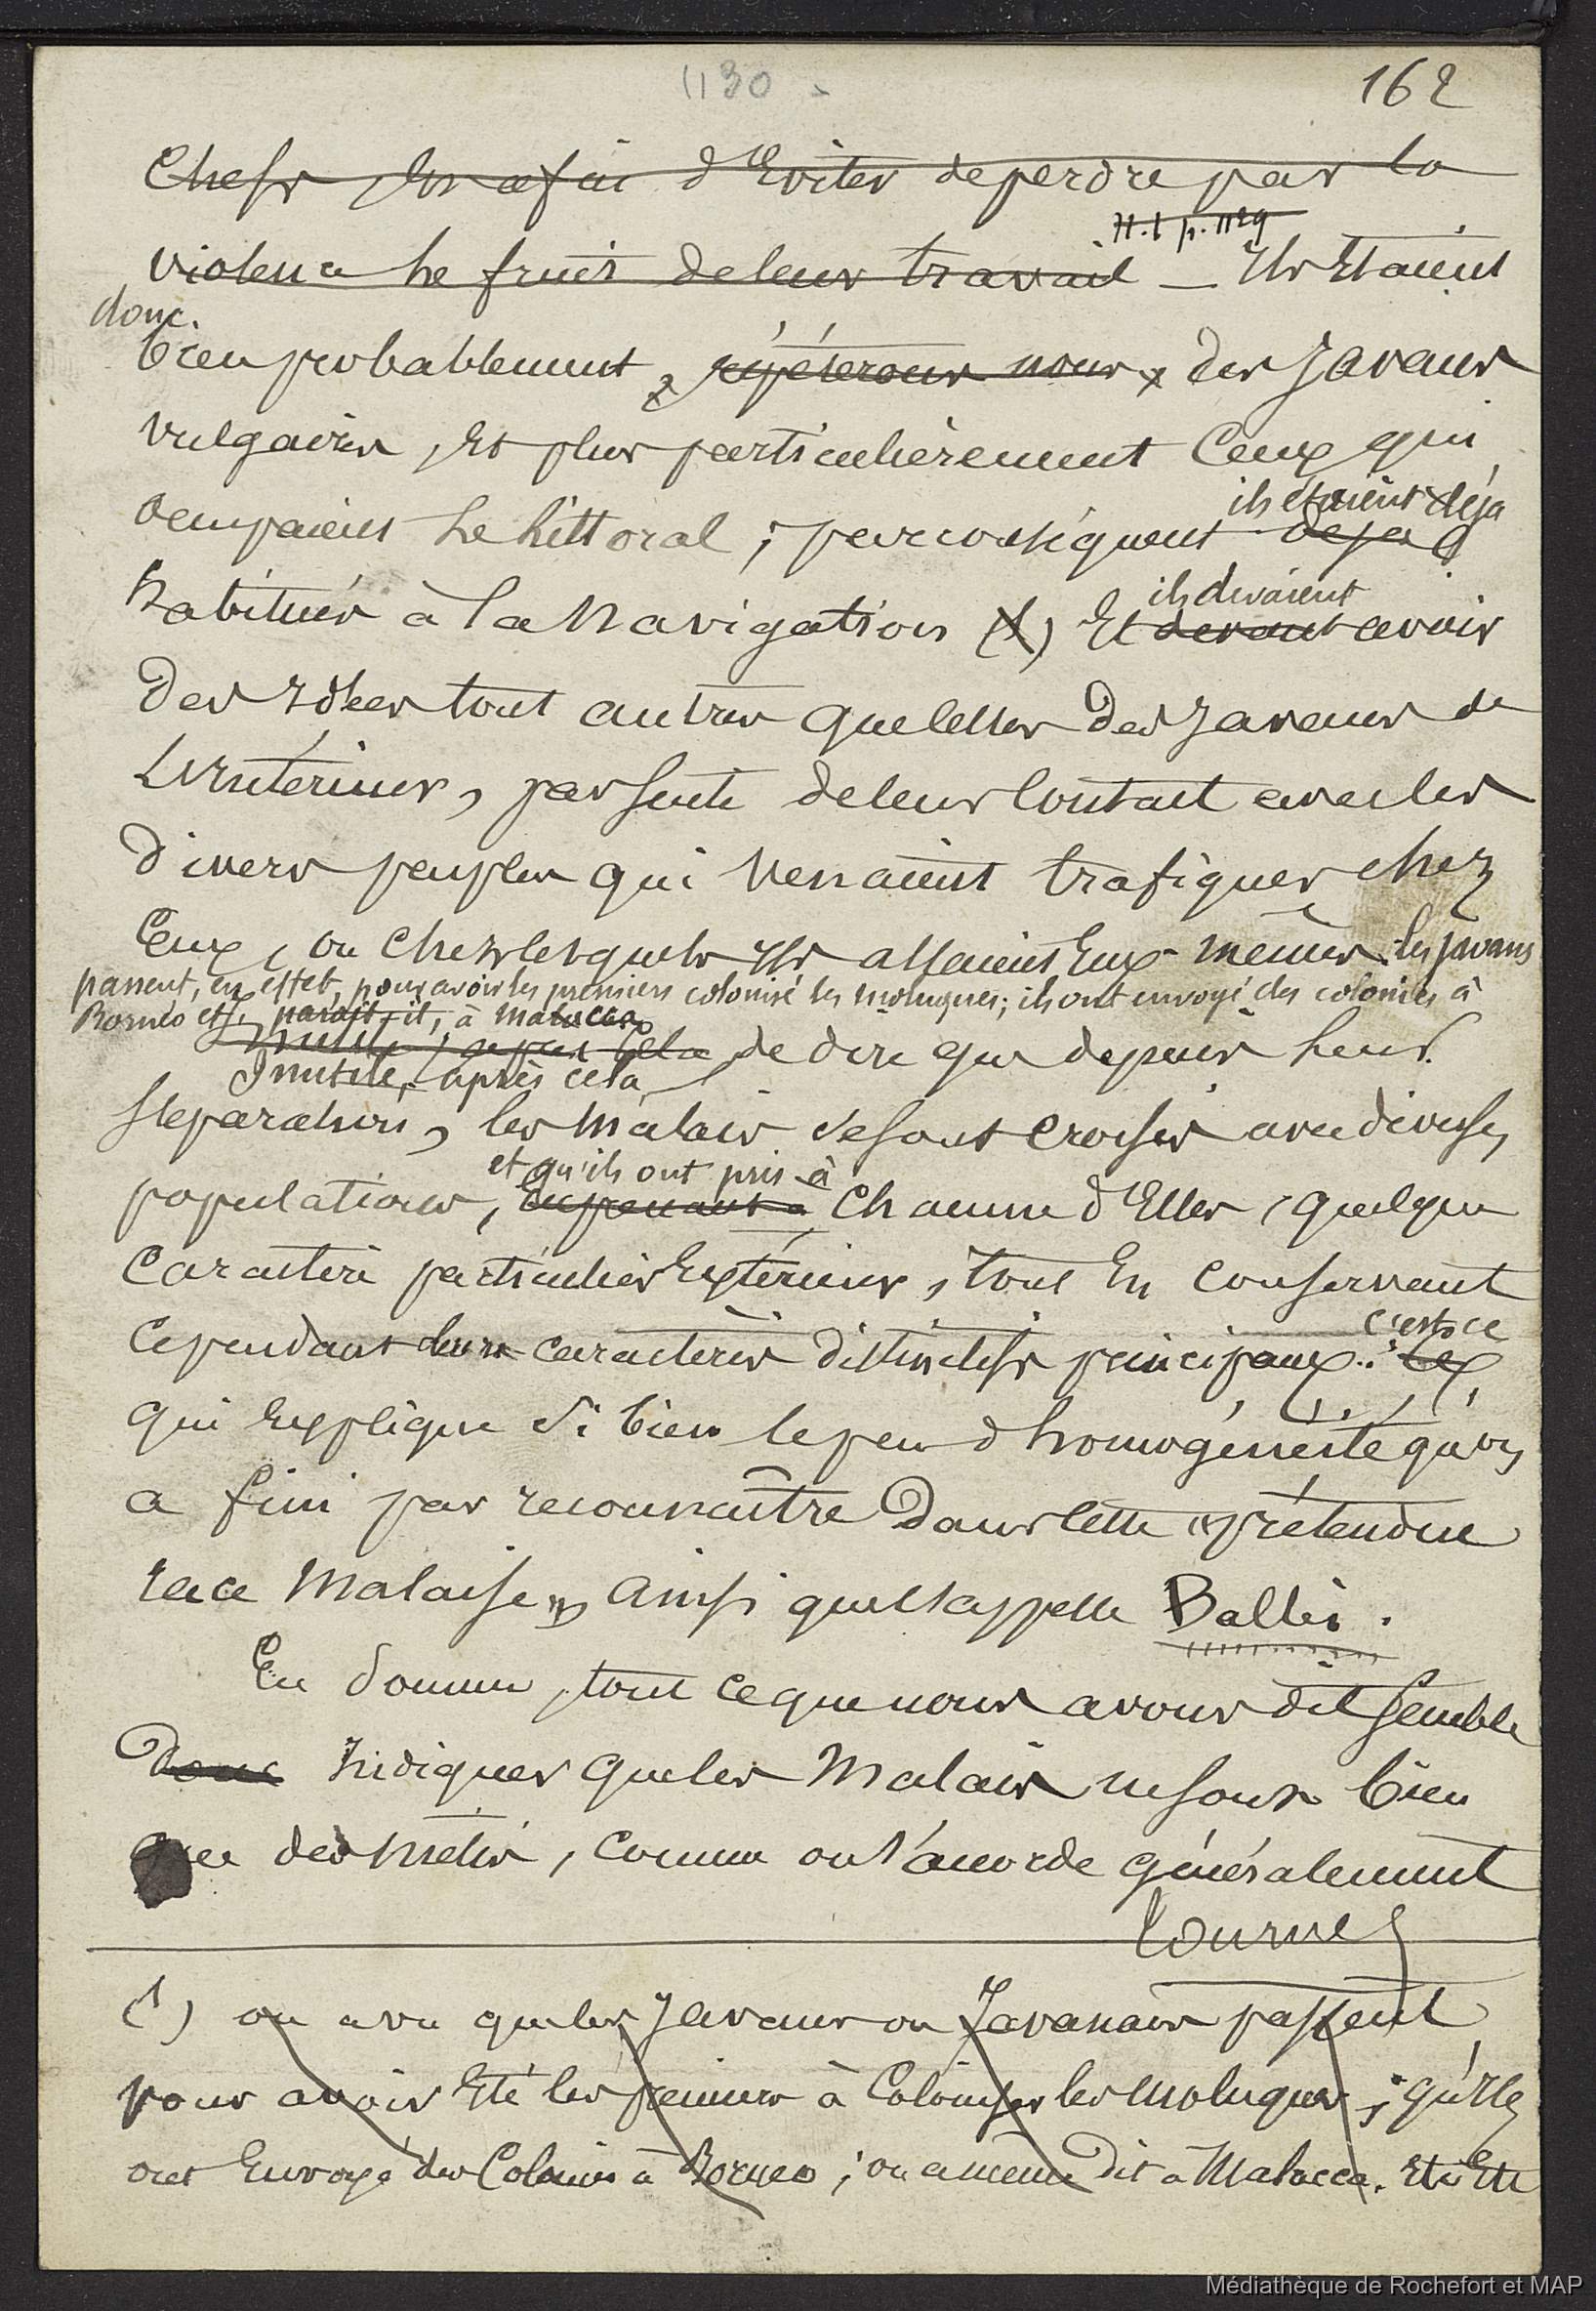 1130
162
Chefs, Et afin d'Eviter de perdre par la
H.t p. 1129
violence le fruit de leur travail — Ils Etaient
donc
bien probablement, répéterons nous, des Javans
vulgaires, Et plus particulièrement Ceux qui
ils étaient déjà
occupaient le littoral ; par conséquent déjà
habitués à la navigation (1) Et devant avoir
ils devaient
des Idées tout autres que celles des Javans de
L'Intérieur, par suite de leur Contact avec les
divers peuples qui venaient trafiquer chez
Eux, ou chez lesquels Ils allaient Eux-mêmes. les Javans
passent, en effet, pour avoir les premiers colonisé les Moluques ; ils ont envoyé des colonies à
Bornéo et, paraît-il, à Malacca
Inutile, après Cela de dire que depuis leur
Inutile, après cela
Séparation, les Malais se sont croisés avec diverses
et qu'ils ont pris à
populations, En prenant à Chacune d'Elles, quelque
Caractère particulier Extérieur, tout En conservant
c'est ce
Cependant leurs caractères distinctifs principaux :
qui Explique si bien le peu d'homogénéité qu'on
a fini par reconnaître Dans Cette « prétendue
race Malaise » Ainsi que l'appelle Balbi.
En somme, tout ce que nous avons dit semble
donc Indiquer que les Malais ne sont bien
que des Métis, comme on l'accorde généralement
tournez
(1) on a vu que les Javans ou Javanais passent
pour avoir Eté les premiers à Coloniser les Moluques ; qu'Ils
ont Envoyé des Colonies à Borneo ; on a même dit à Malacca.